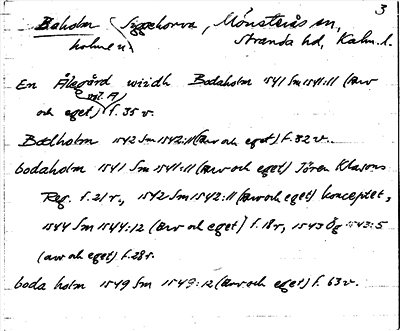 3
Baholm (Syggehorva, Mönsterås sn,
holmen) Stranda hd, Kalm. l.
En Ålegård widh Bodaholm 1541 Sm 1541:11 (arv
(vol. A)
och eget) f. 35 v.
Bodholm 1542 Sm 1542:11 (arv och eget) f. 32 v.
bodaholm 1541 Sm 1541:11 (arv och eget) Jören Klasons
Reg. f. 21 r., 1542 Sm 1542:11 (arv och eget) konceptet,
1544 Sm 1544:12 (arv och eget) f. 18 r, 1543 Ög 1543:5
(arv och eget) f. 28 r.
boda holm 1549 Sm 1549:12 (arv och eget) f. 63 v.